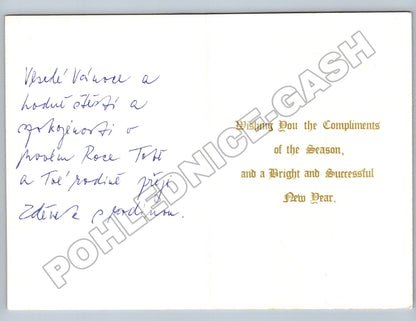 Veselé Vánoce a
hodně štěstí a
spokojenosti v
novém Roce Tobě
a Tvé rodině přeje
Zdeněk s rodinou.
Wishing You the Compliments
of the Season,
and a Bright and Successful
New Year.
POHLEDNICE-GASH